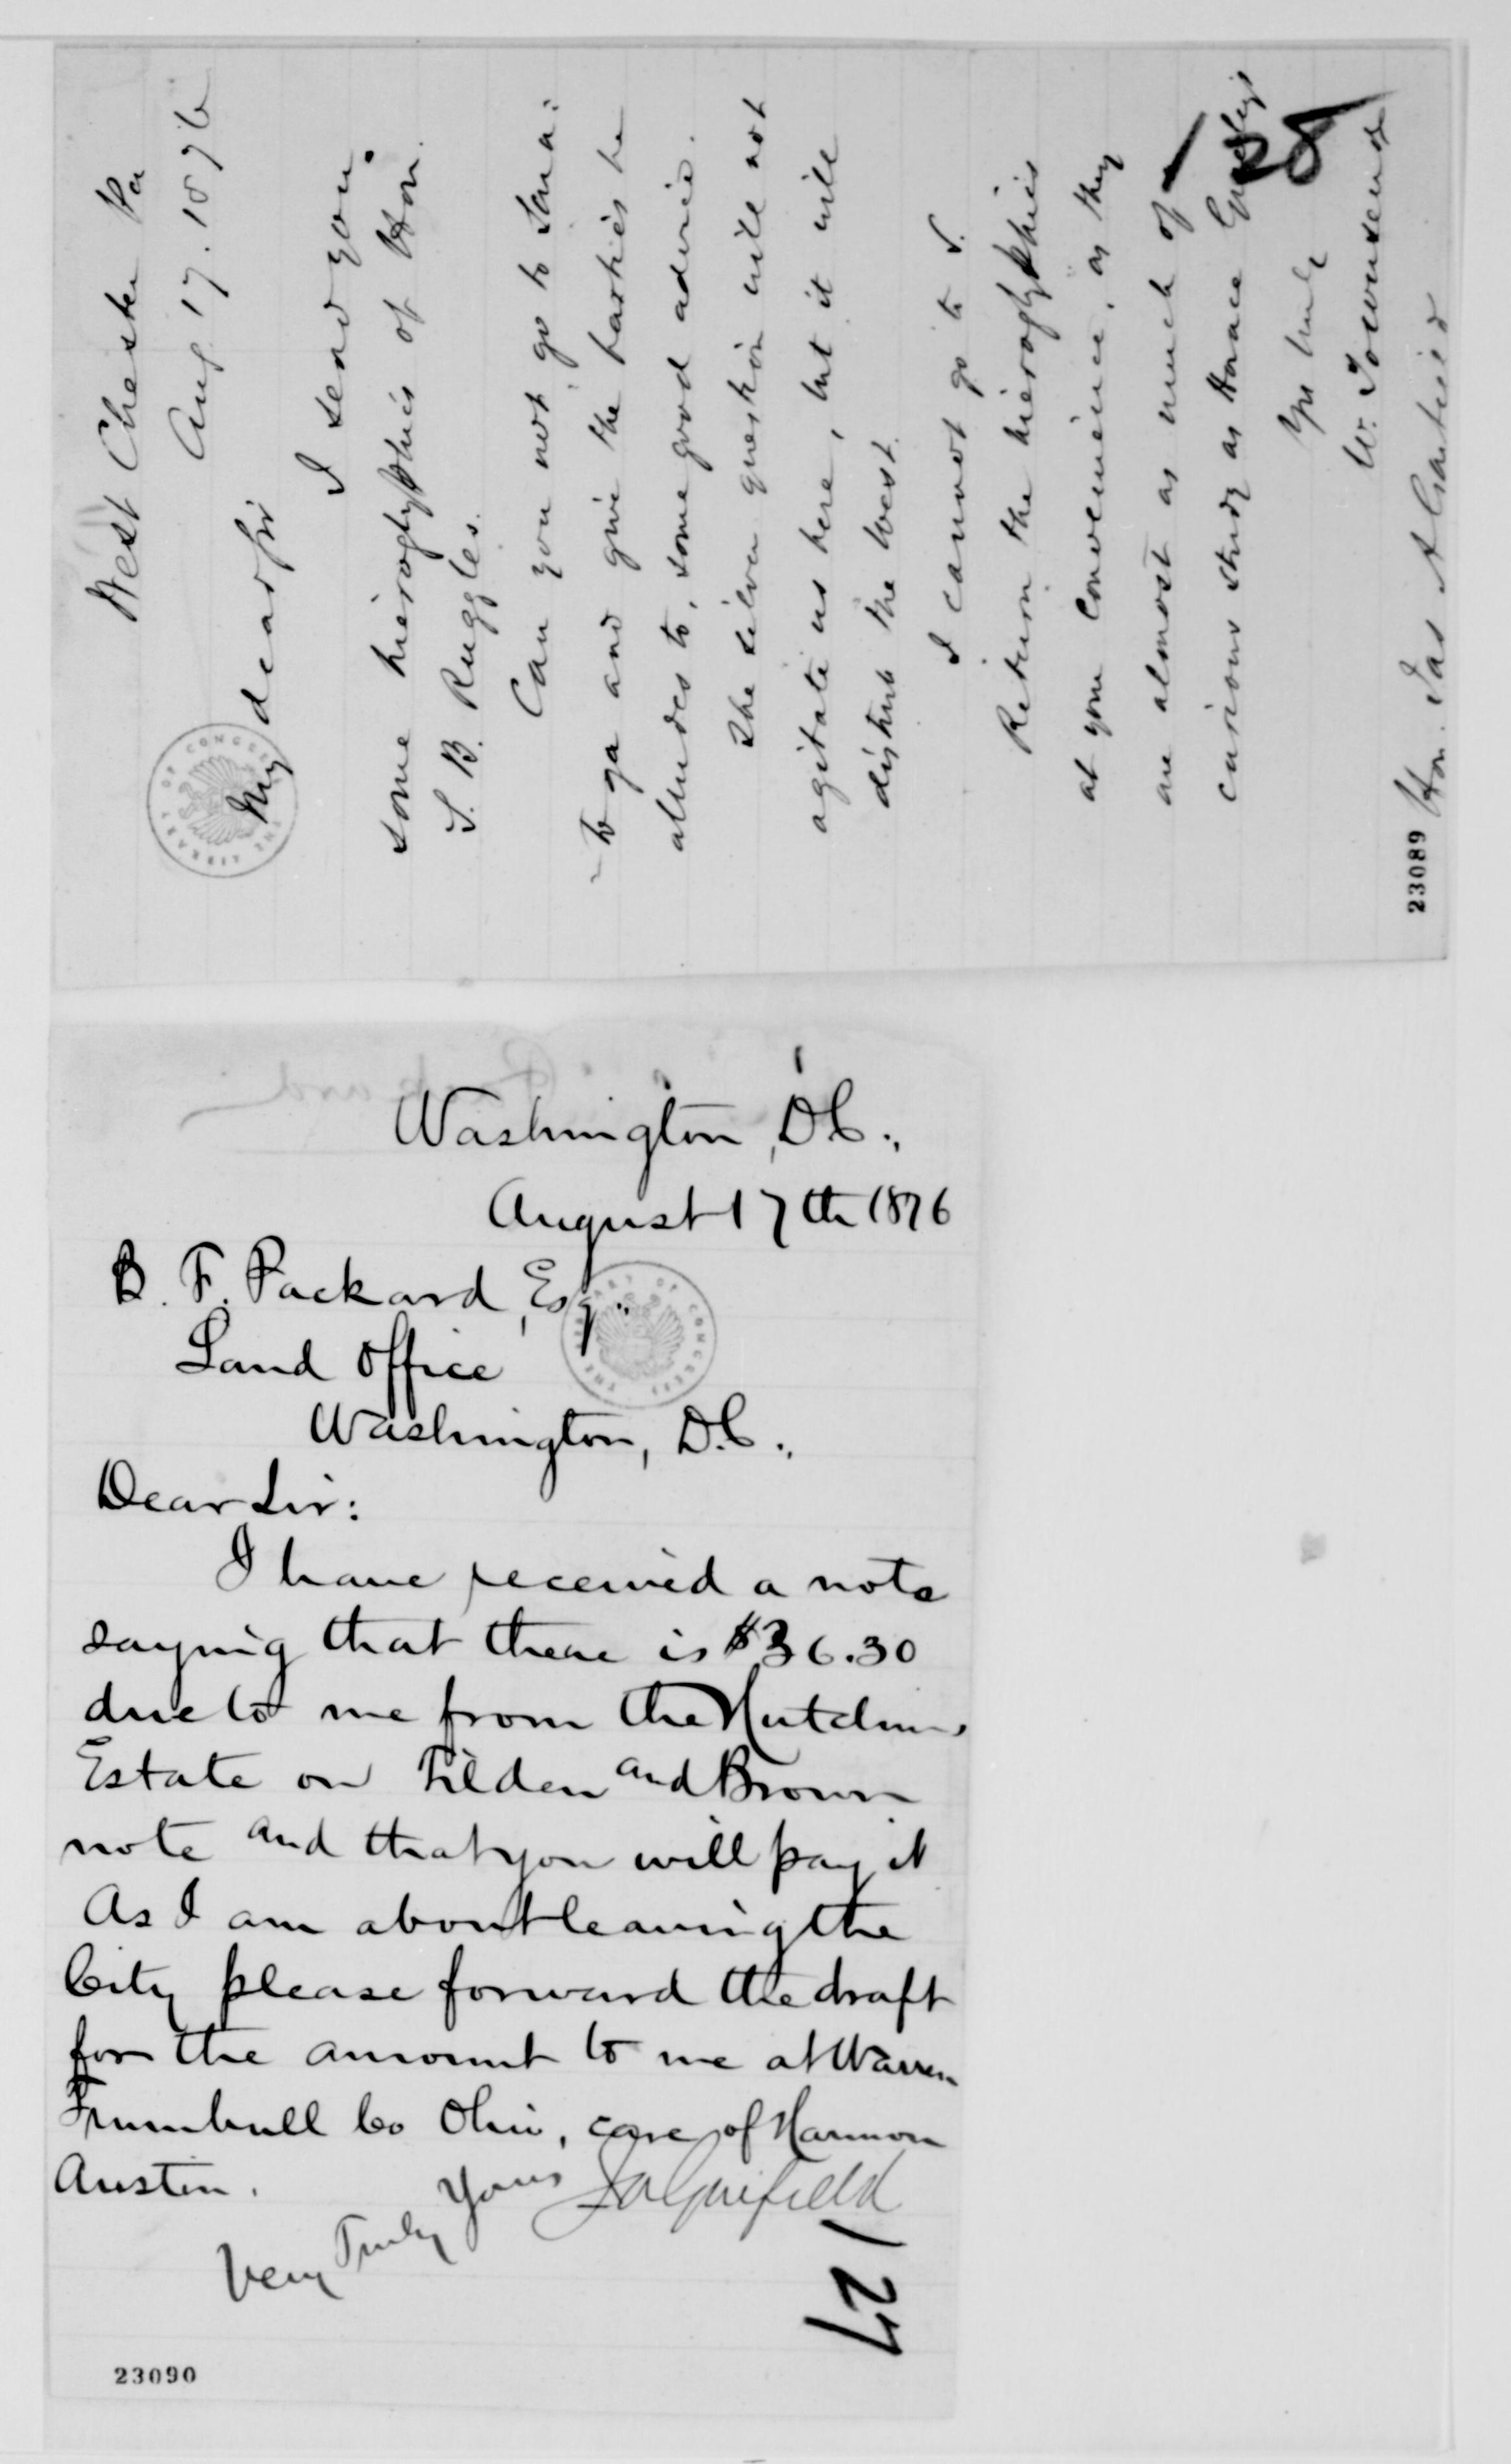 West Chester Pa
Aug. 17. 1876
My dear Sir
I send you
some hieroglyphics of Hon.
S. B. Ruggles.
Can you not go to Sara:
to ga and give the parties he
alludes to, some good advice.
The silver question will not
agitate us here, but it will
disturb the West.
I cannot go to S.
Return the hieroglyphics
at your convenience, as they
are almost as much of
curious study as Horace Greeleys
Yrs truly
W. Townsend
Hon. Jas A Garfield
128
23089
THE LIBRARY OF CONGRESS
Washington, D.C.,
August 17th 1876
B. F. Packard, Esq.,
Land Office
Washington, D.C.,
THE LIBRARY OF CONGRESS
Dear Sir:
I have received a note
saying that there is $36.30
due to me from the Hutchins
Estate on Tilden and Brown
note and that you will pay it
As I am about leaving the
City please forward the draft
for the amount to me at Warren
Trumbull Co Ohio, care of Harmon
Austin.
Very Truly Yours
J A Garfield
127
23090